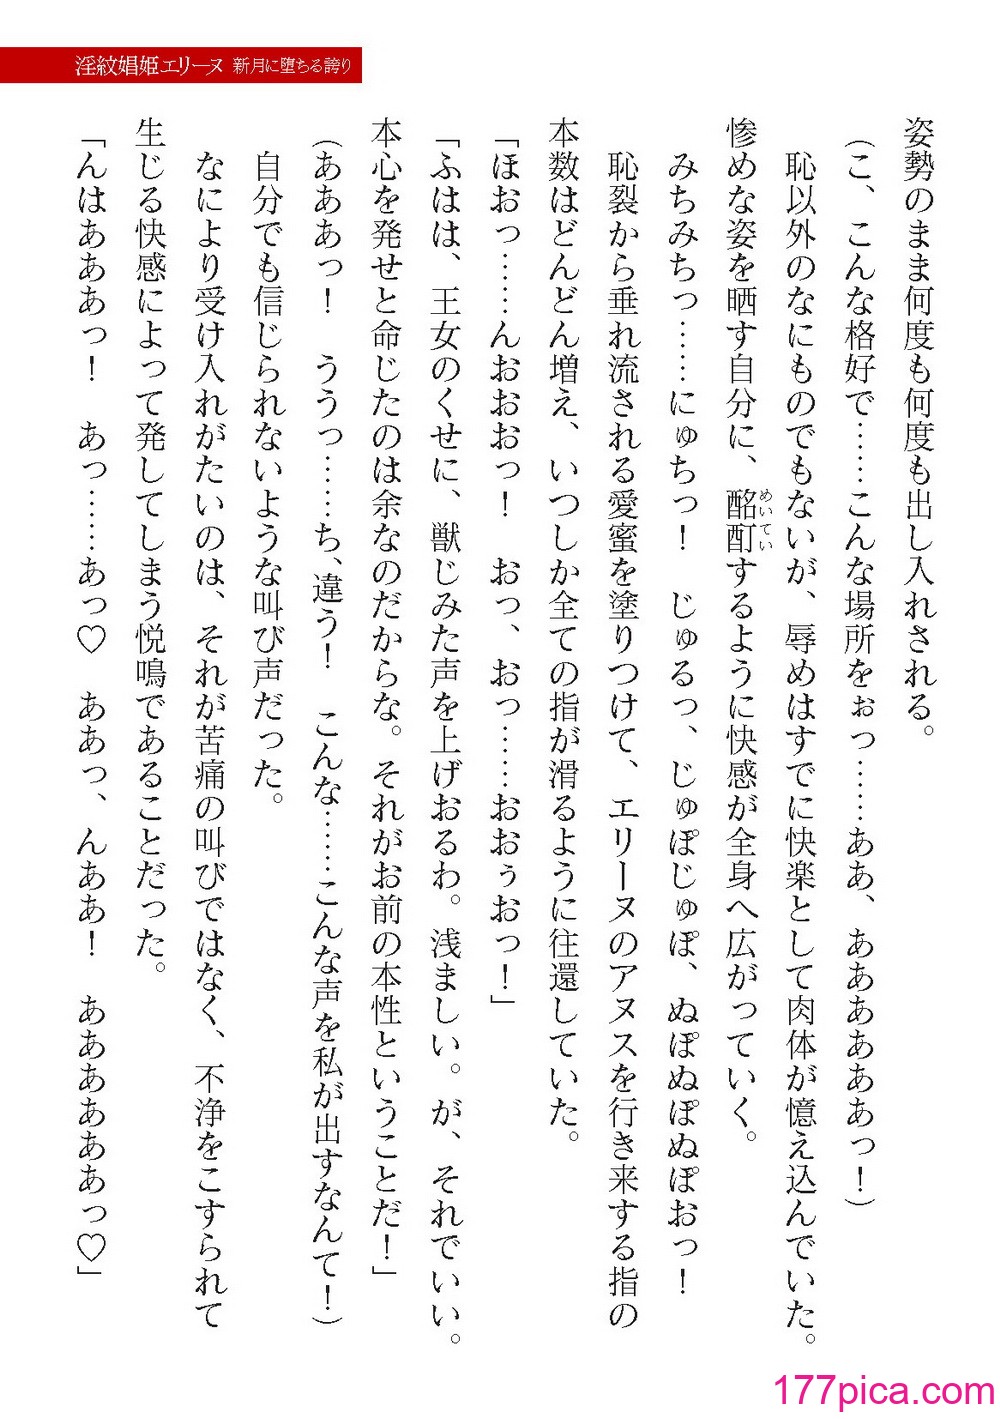 淫紋娼姫エリーヌ 新月に堕ちる誇り
姿勢のまま何度も何度も出し入れされる。
（こ、こんな格好で……こんな場所をぉっ……ああ、ああああああっ！）
恥以外のなにものでもないが、辱めはすでに快楽として肉体が憶え込んでいた。
惨めな姿を晒す自分に、酩酊するように快感が全身へ広がっていく。
めいてい
みちみちっ……にゅちっ！　じゅるっ、じゅぽじゅぽ、ぬぽぬぽぬぽおっ！
恥裂から垂れ流される愛蜜を塗りつけて、エリーヌのアヌスを行き来する指の
本数はどんどん増え、いつしか全ての指が滑るように往還していた。
「ほおっ……んおおおっ！　おっ、おっ……おおぅおっ！」
「ふはは、王女のくせに、獣じみた声を上げおるわ。浅ましい。が、それでいい。
本心を発せと命じたのは余なのだからな。それがお前の本性ということだ！」
（あああっ！　ううっ……ち、違う！　こんな……こんな声を私が出すなんて！）
自分でも信じられないような叫び声だった。
なにより受け入れがたいのは、それが苦痛の叫びではなく、不浄をこすられて
生じる快感によって発してしまう悦鳴であることだった。
「んはあああっ！　あっ……あっ♡　ああっ、んああ！　ああああああっ♡」
177pica.com